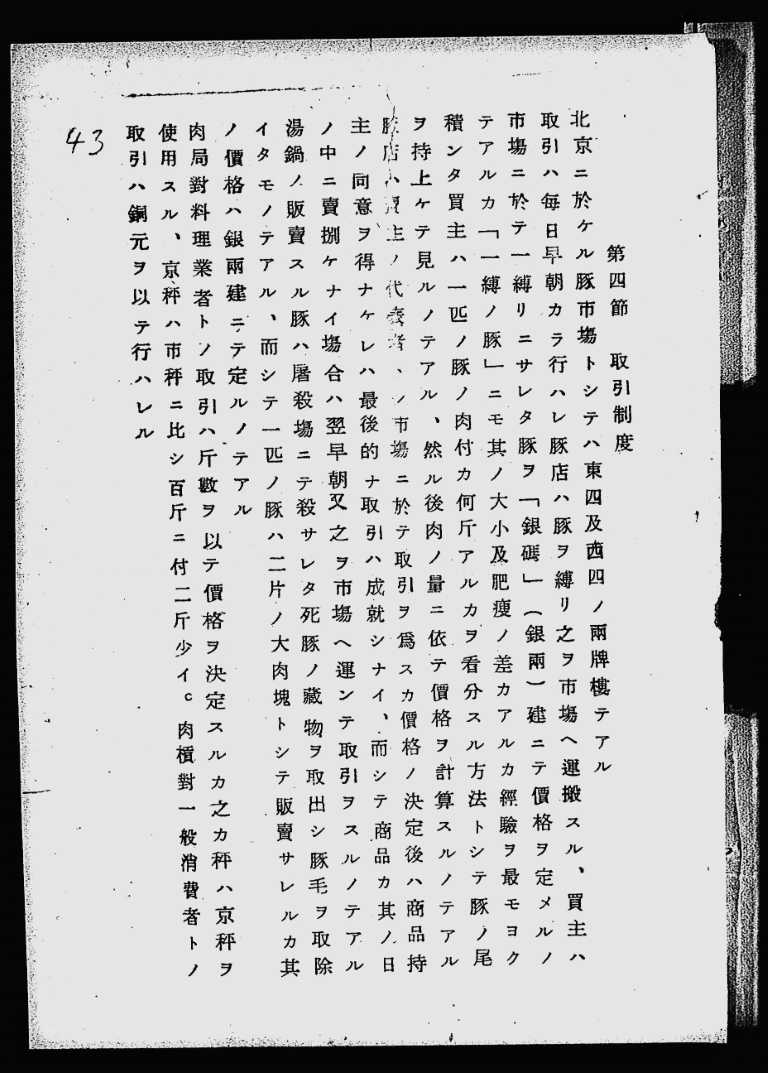 第四節　取引制度
北京ニ於ケル豚市場トシテハ東四及西四ノ兩牌樓テアル
取引ハ毎日早朝カラ行ハレ豚店ハ豚ヲ縛リ之ヲ市場ヘ運搬スル、買主ハ
市場ニ於テ一縛リニサレタ豚ヲ「銀碼」（銀兩）建ニテ價格ヲ定メルノ
テアルカ「一縛ノ豚」ニモ其ノ大小及肥瘦ノ差カアルカ經驗ヲ最モヨク
積ンタ買主ハ一匹ノ豚ノ肉付カ何斤アルカヲ看分スル方法トシテ豚ノ尾
ヲ持上ケテ見ルノテアル、然ル後肉ノ量ニ依テ價格ヲ計算スルノテアル
店ハ主ノ代表者、ノ市場ニ於テ取引ヲ爲スカ價格ノ決定後ハ商品持
主ノ同意ヲ得ナケレハ最後的ナ取引ハ成就シナイ、而シテ商品カ其ノ日
ノ中ニ賣捌ケナイ場合ハ翌早朝又之ヲ市場ヘ運ンテ取引ヲスルノテアル
湯鍋ノ販賣スル豚ハ屠殺場ニテ殺サレタ死豚ノ藏物ヲ取出シ豚毛ヲ取除
イタモノテアル、而シテ一匹ノ豚ハ二片ノ大肉塊トシテ販賣サレルカ其
ノ價格ハ銀兩建ニテ定ルノテアル
肉局對料理業者トノ取引ハ斤數ヲ以テ價格ヲ決定スルカ之カ秤ハ京秤ヲ
使用スル、京秤ハ市秤ニ比シ百斤ニ付二斤少イ。肉槓對一般消費者トノ
取引ハ銅元ヲ以テ行ハレル
43